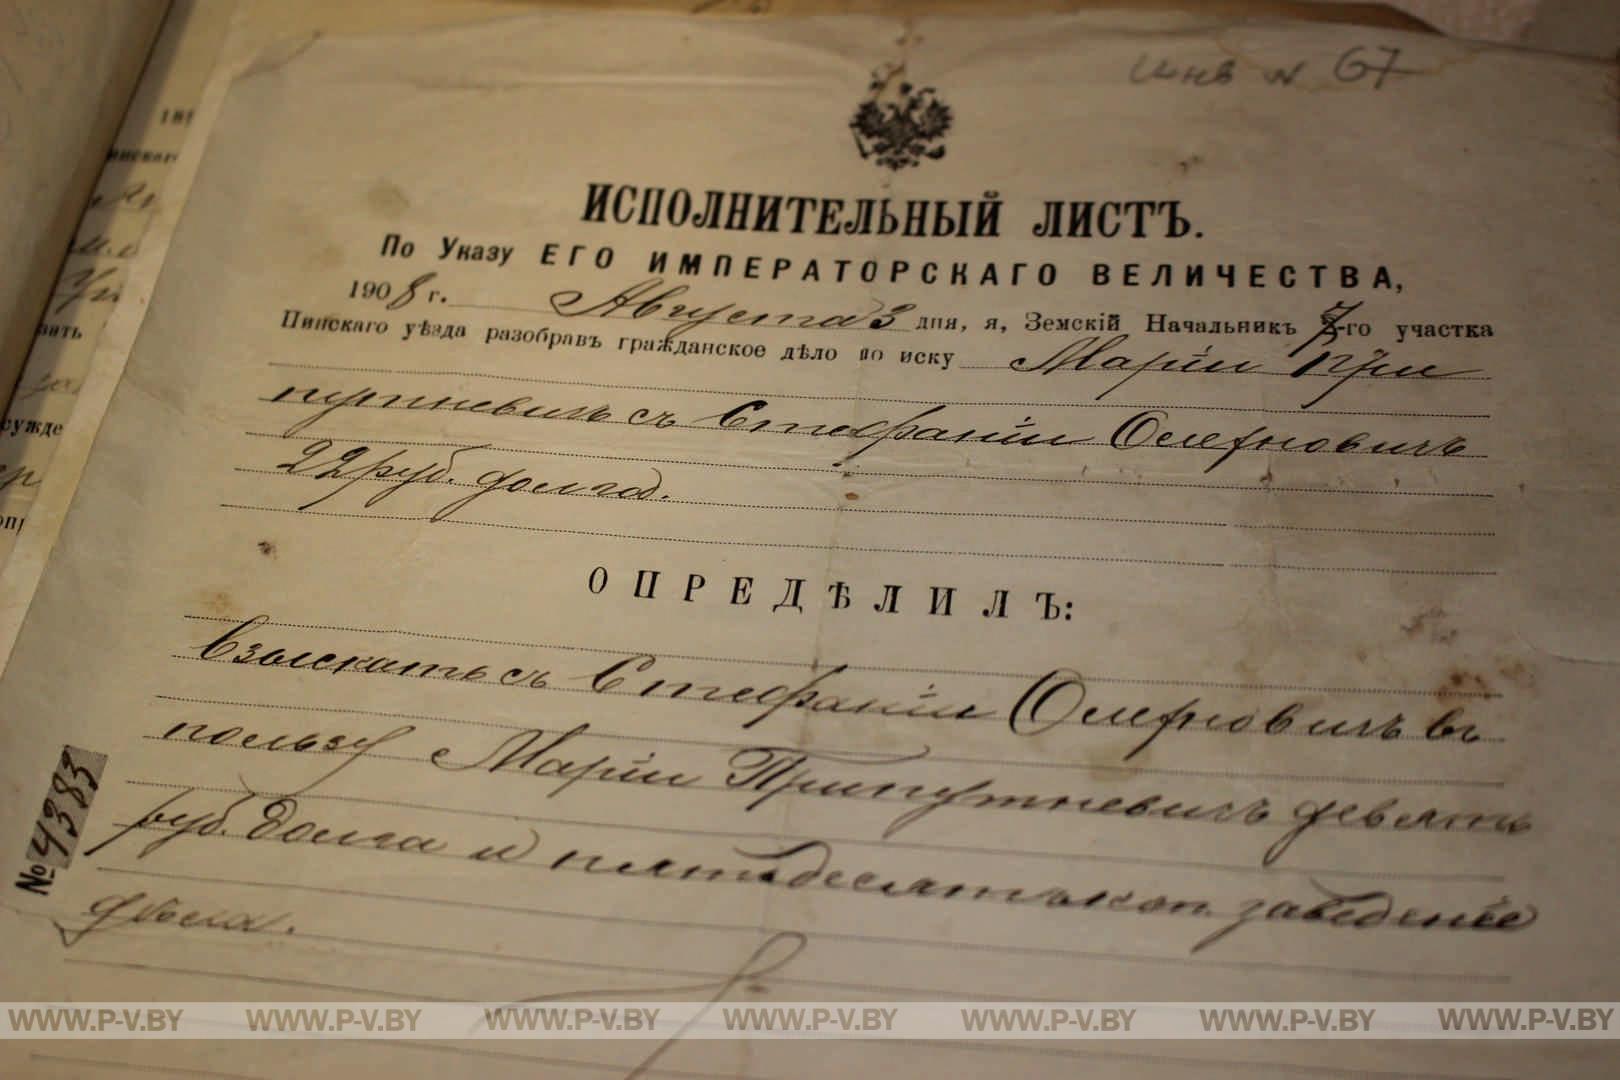 Инв N 67
ИСПОЛНИТЕЛЬНЫЙ ЛИСТЪ.
По Указу ЕГО ИМПЕРАТОРСКАГО ВЕЛИЧЕСТВА,
1908 г. Августа 3 дня, я, Земскій Начальникъ го участка
Пинскаго уѣзда разобравъ гражданское дѣло по иску Маріи При
путневичъ съ Стефаніи
22 руб. долга.
ОПРЕДѢЛИЛЪ:
Взыскать съ Стефаніи въ
пользу Маріи Припутневичъ девять
руб. долга и пятьдесятъ коп. заведеніе
дѣла.
№4383
189
WWW.P-V.BY WWW.P-V.BY WWW.P-V.BY WWW.P-V.BY WWW.P-V.BY WWW.P-V.BY WWW.P-V.BY